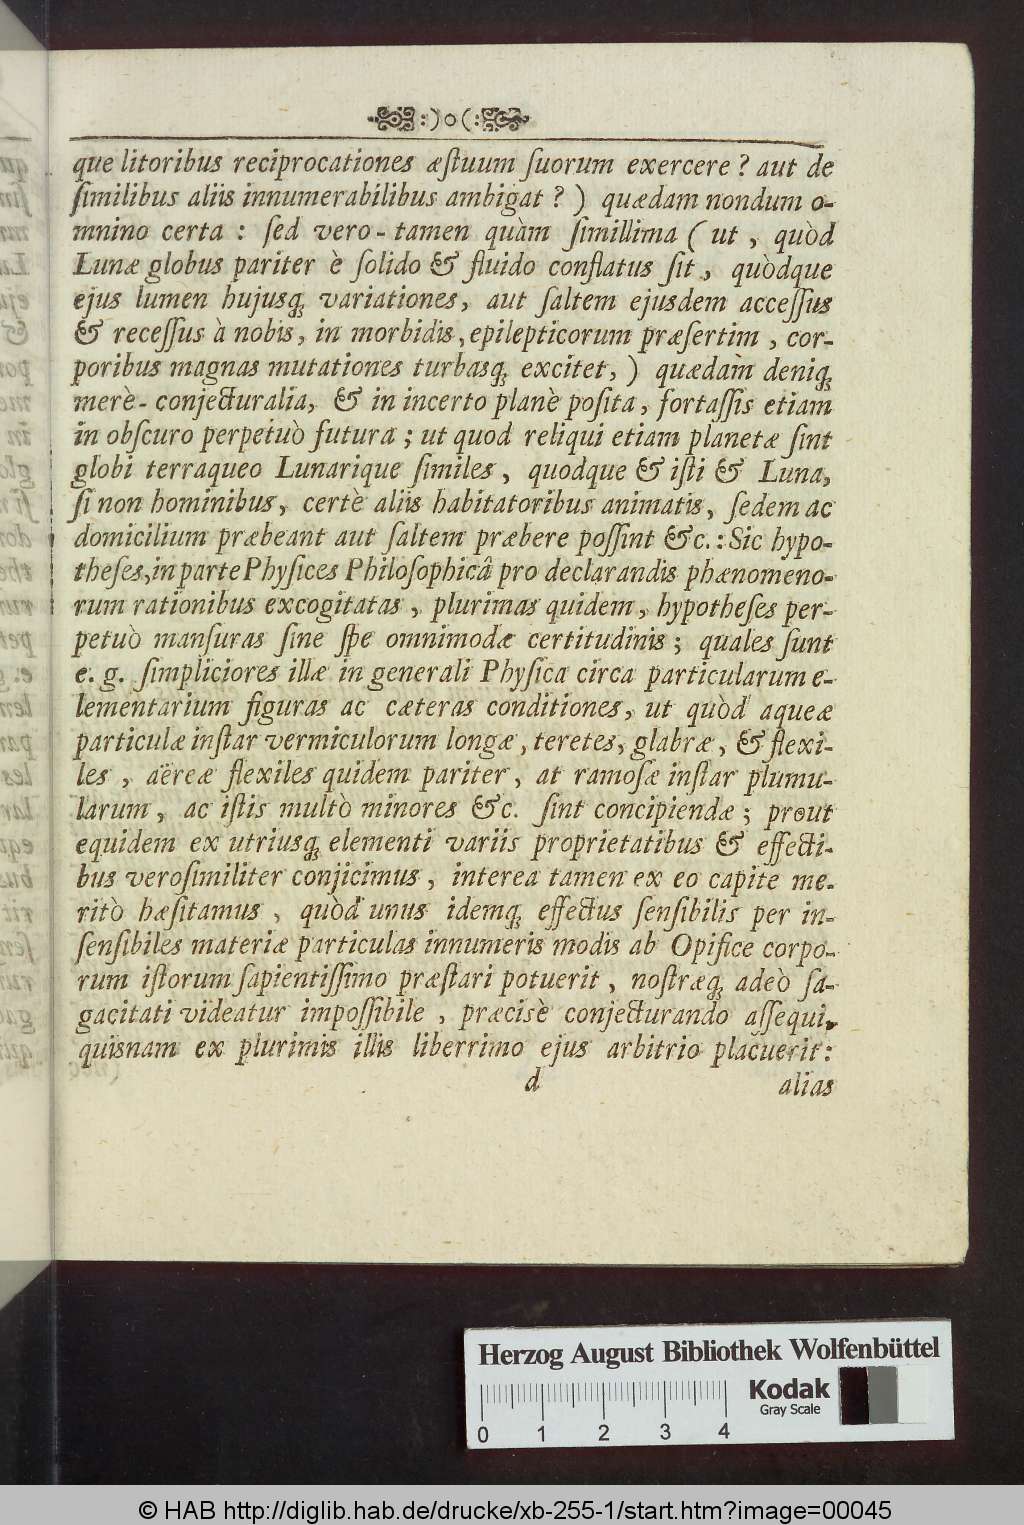 :)o(:
que litoribus reciprocationes æstuum suorum exercere? aut de
similibus aliis innumerabilibus ambigat?) quædam nondum o-
mnino certa: sed vero-tamen quàm simillima (ut, quòd
Lunæ globus pariter è solido & fluido conflatus sit, quòdque
ejus lumen hujusq; variationes, aut saltem ejusdem accessus
& recessus à nobis, in morbidis, epilepticorum præsertim, cor-
poribus magnas mutationes turbasq; excitet,) quædam deniq;
merè-conjecturalia, & in incerto planè posita, fortassis etiam
in obscuro perpetuò futura; ut quod reliqui etiam planetæ sint
globi terraqueo Lunarique similes, quodque & isti & Luna,
si non hominibus, certè aliis habitatoribus animatis, sedem ac
domicilium præbeant aut saltem præbere possint &c.: Sic hypo-
theses, in parte Physices Philosophicâ pro declarandis phænomeno-
rum rationibus excogitatas, plurimas quidem, hypotheses per-
petuò mansuras sine spe omnimodæ certitudinis; quales sunt
e. g. simpliciores illæ in generali Physica circa particularum e-
lementarium figuras ac cæteras conditiones, ut quòd aqueæ
particulæ instar vermiculorum longæ, teretes, glabræ, & flexi-
les, aëreæ flexiles quidem pariter, at ramosæ instar plumu-
larum, ac istis multò minores &c. sint concipiendæ; prout
equidem ex utriusq; elementi variis proprietatibus & effecti-
bus verosimiliter conjicimus, interea tamen ex eo capite me-
ritò hæsitamus, quòd unus idemq; effectus sensibilis per in-
sensibiles materiæ particulas innumeris modis ab Opifice corpo-
rum istorum sapientissimo præstari potuerit, nostræq; adeò sa-
gacitati videatur impossibile, præcisè conjecturando assequi,
quisnam ex plurimis illis liberrimo ejus arbitrio placuerit:
d alias
Herzog August Bibliothek Wolfenbüttel
Kodak
Gray Scale
0 1 2 3 4
© HAB http://diglib.hab.de/drucke/xb-255-1/start.htm?image=00045